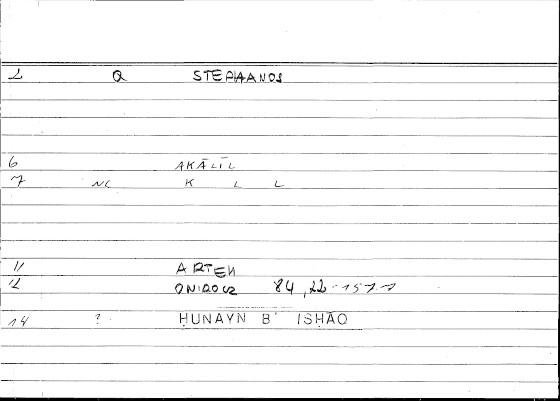 1 Q STEPHANOS
6 AKĀLĪL
7 NC K L L
11 ARTEM
12 ONIROCR 84,22-157.1
14 ? ḤUNAYN B' ISḤĀQ